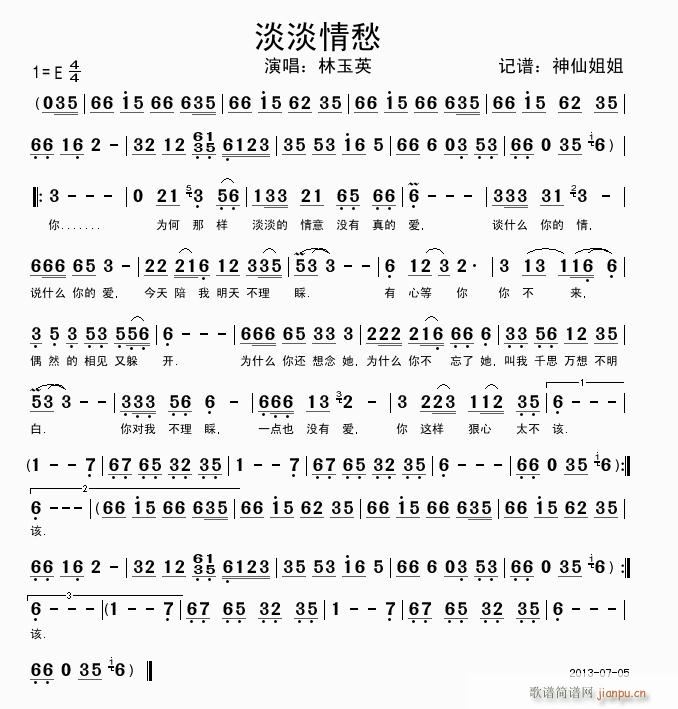 淡淡情愁
1=E 4/4 演唱：林玉英 记谱：神仙姐姐
(035|66 i5 66 635|66 i5 62 35|66 i5 66 635|66 i5 62 35|
66 16 2 -|32 12 61 35 6123|35 53 i6 5|66 6 03 53|66 0 35 i6)|
‖: 3 - - -|0 21 5 3 56|133 21 65 66|6 - - -|333 31 2 3 -|
你....... 为何 那 样 淡淡的 情意 没有 真的 爱, 谈什么 你的 情,
666 65 3 -|22 216 12 335|53 3 - -|6 12 3 2·|3 13 116 6|
说什么 你的 爱, 今天 陪 我 明天 不理 睬. 有 心等 你 你 不 来,
3 5 3 53 556|6 - - -|666 65 33 3|222 216 66 6|33 56 12 35|
偶 然 的 相见 又躲 开. 为什么 你还 想念 她, 为什么 你不 忘了 她, 叫我 千思 万想 不明
53 3 - -|333 35 56 6|666 13 3 2 -|3 223 112 35|1 6 - - -|
白. 你对我 不理 睬, 一点也 没有 爱, 你 这样 狠心 太不 该.
(1 - - 7|67 65 32 35|1 - - 7|67 65 32 35|6 - - -|66 0 35 i6):‖
2
6 - - -|(66 i5 66 635|66 i5 62 35|66 i5 66 635|66 i5 62 35|
该.
66 16 2 -|32 12 61 35 6123|35 53 i6 5|66 6 03 53|66 0 35 i6):‖
3
6 - - -|(1 - - 7|67 65 32 35|1 - - 7|67 65 32 35|6 - - -|
该.
66 0 35 i6)‖
2013-07-05
歌谱简谱网 jianpu.cn